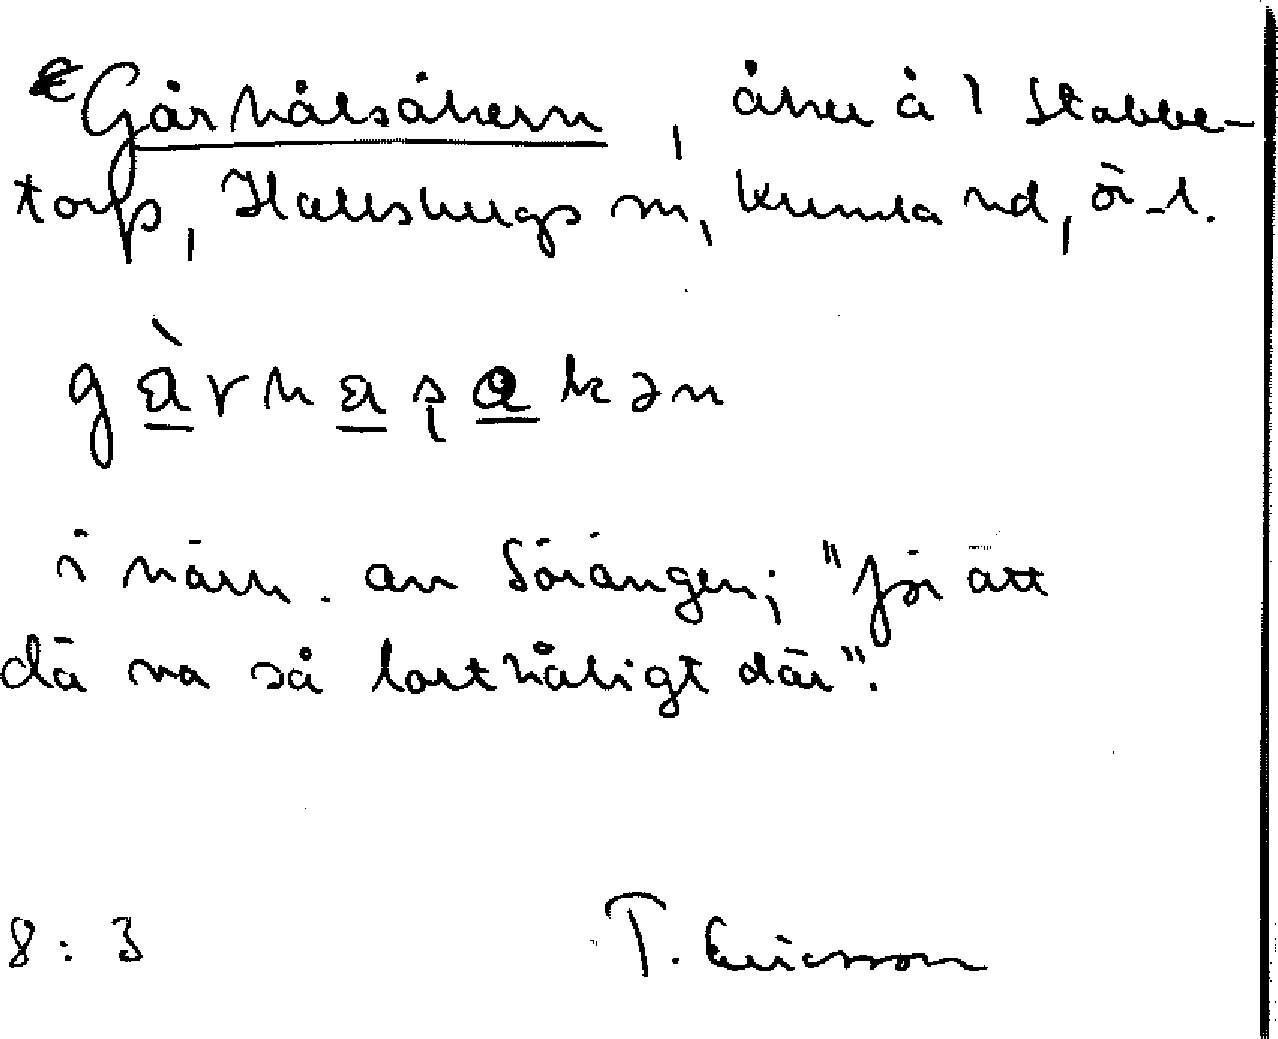 € Gårhålsåkern, åker å 1 Stabbe-
torp, Hallsbergs sn, Kumla hd, ö-l.
gàrhaṣɑkən
i närh. av Söräng​en; "för att
dä va så lorthåligt där".
8:3 T. Ericsson